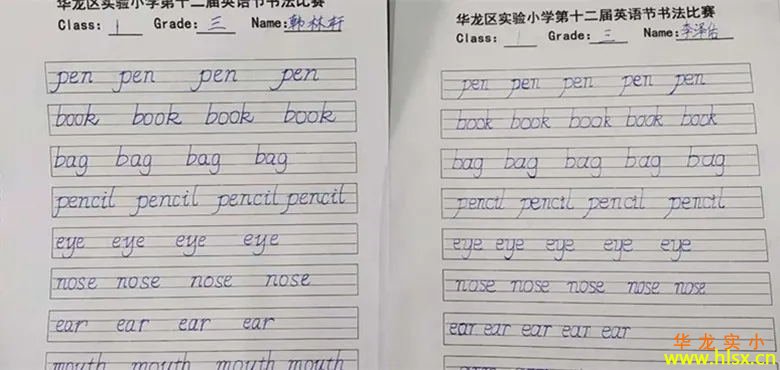 华龙区实验小学第十二届英语节书法比赛
Class: 1 Grade: 三 Name: 韩林轩
pen pen pen pen
book book book book
bag bag bag bag
pencil pencil pencil pencil
eye eye eye eye
nose nose nose nose
ear ear ear ear
mouth mouth mouth mouth
华龙区实验小学第十二届英语节书法比赛
Class: 1 Grade: 三 Name: 李泽佑
pen pen pen pen pen
book book book book book
bag bag bag bag bag
pencil pencil pencil pencil
eye eye eye eye eye
nose nose nose nose nose
ear ear ear ear ear
华龙实小
www.hlsx.cn